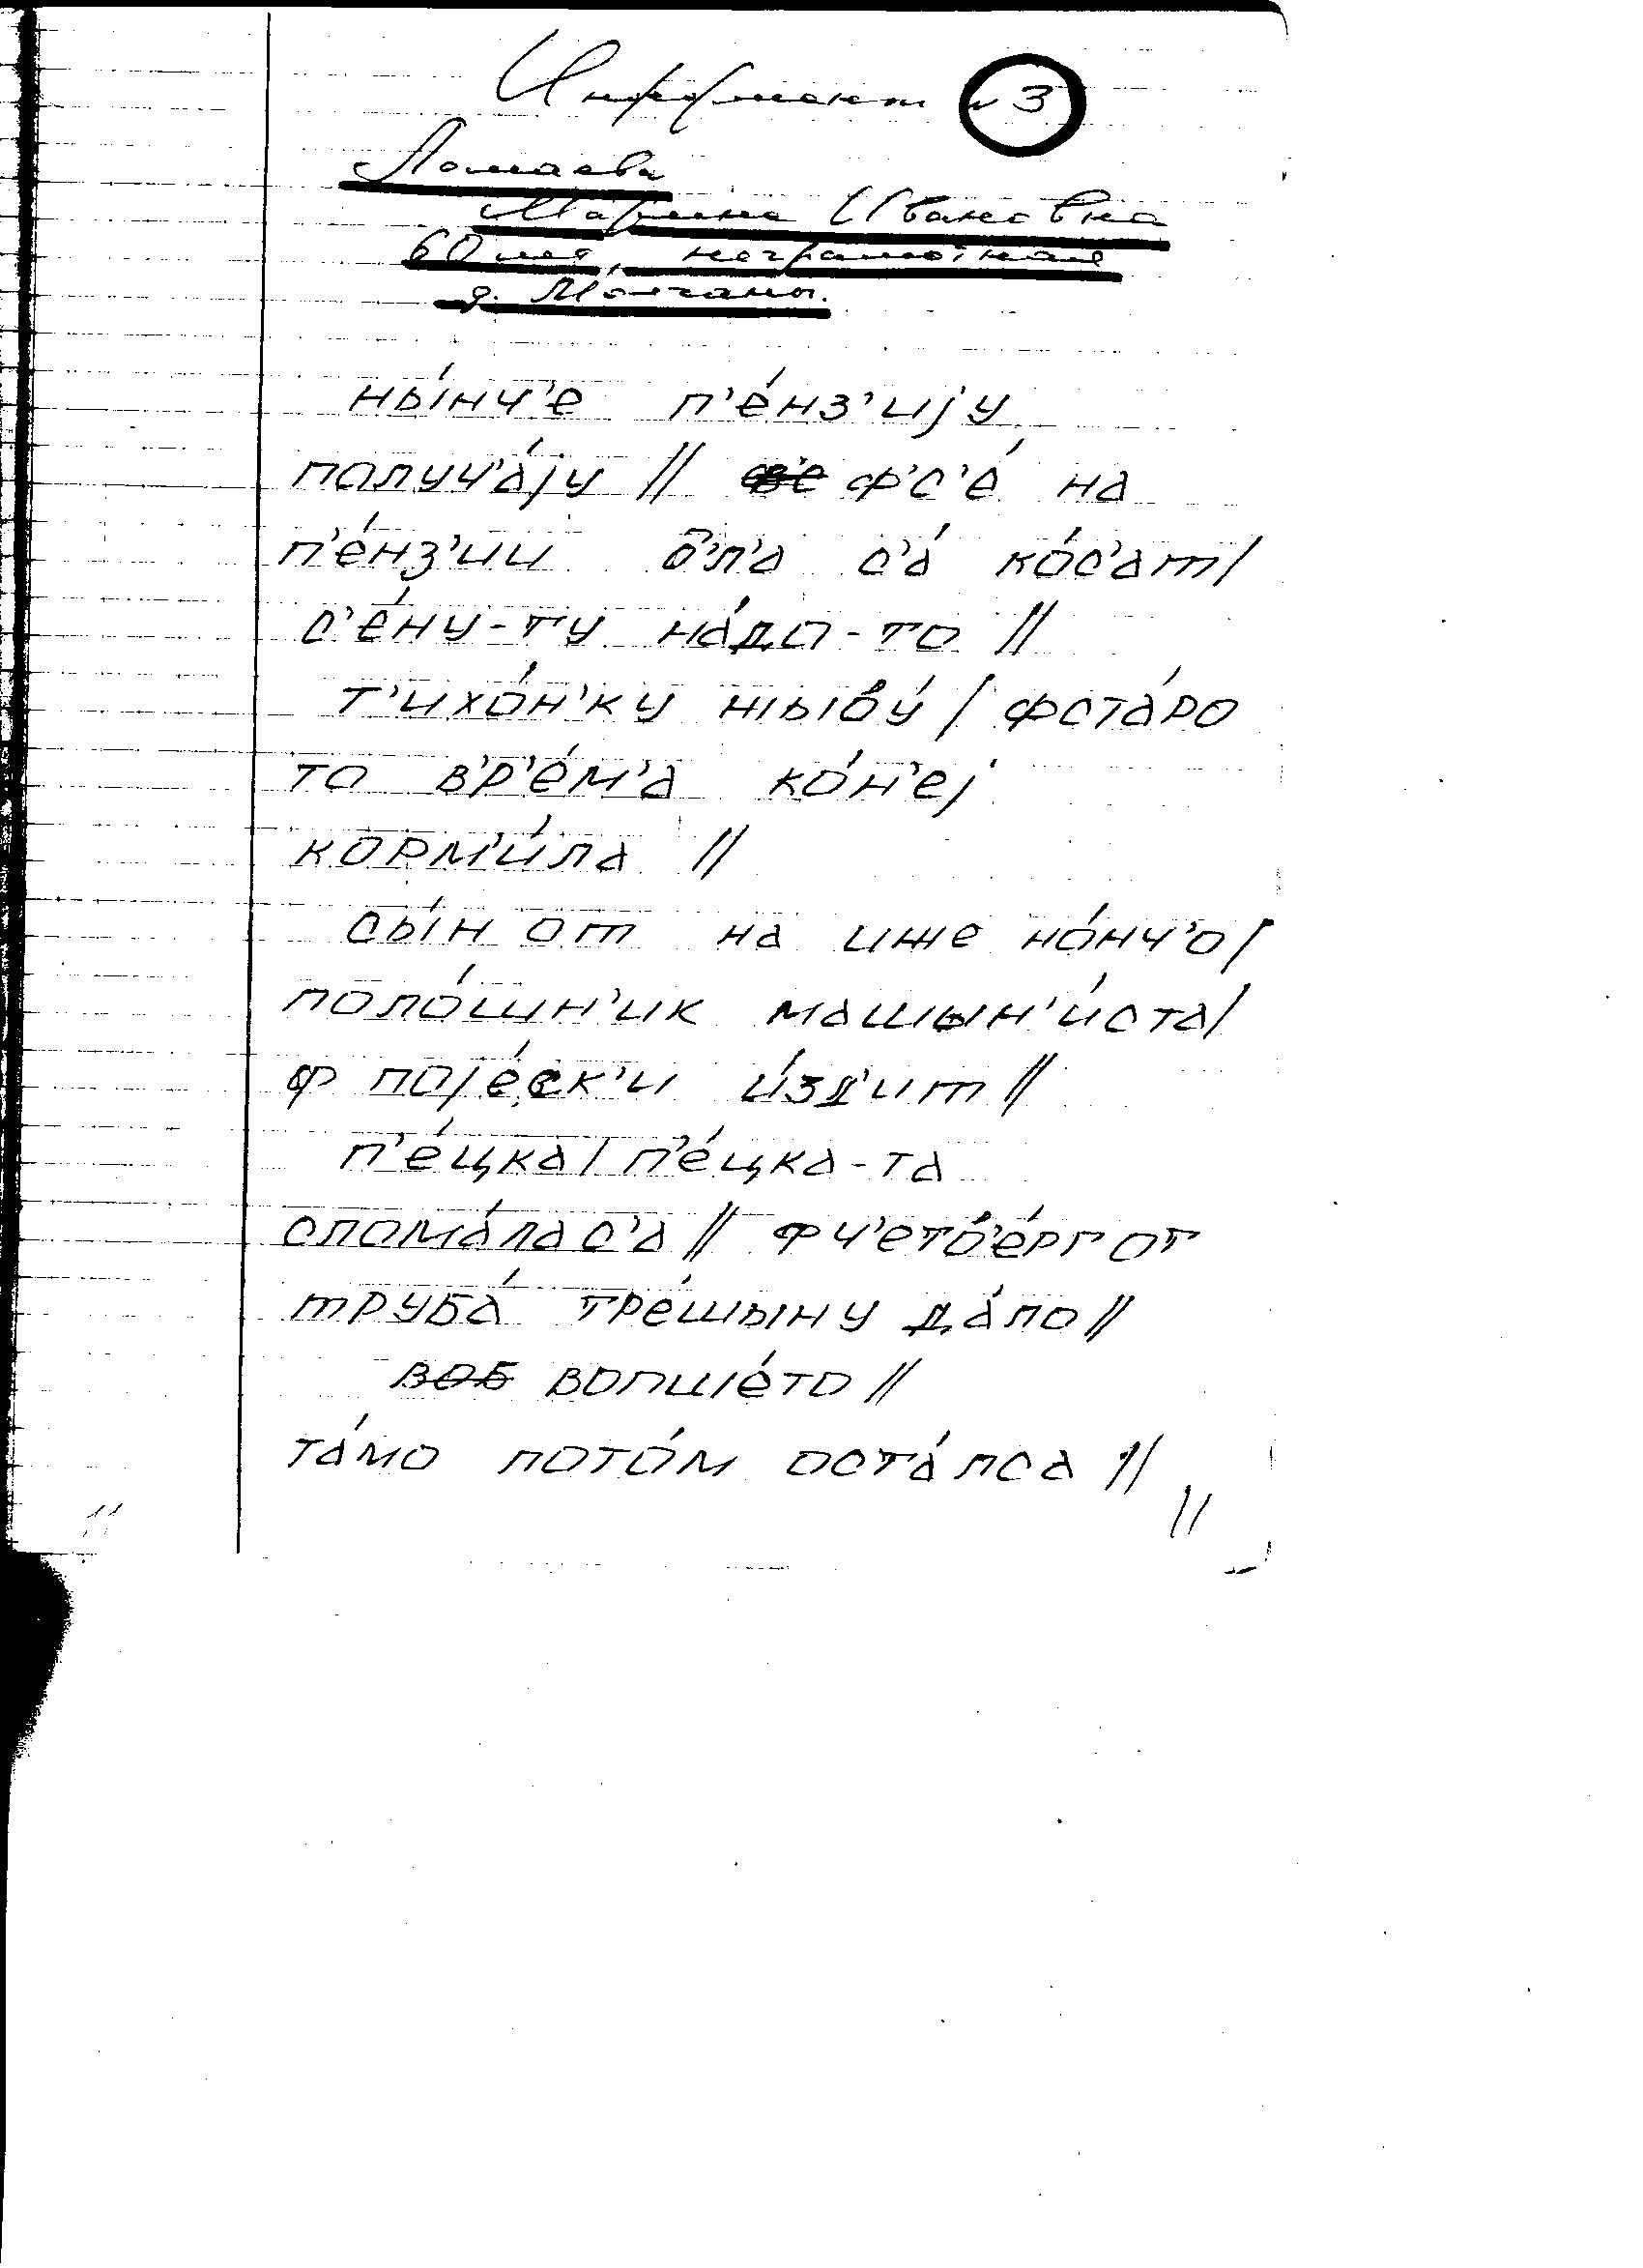 Информант № 3
Ломаева
Марина Ивановна
60 лет, неграмотная
д. Молчаны.
ны́нч'е п'е́нз'иjу
получ'а́jу // ф'с'е́ на
п'е́нз'ии с'а́ ко́с'ат/
с'е́ну-ту на́до-то //
т'ихо́н'ку жыву́ / фста́ро
то в'р'е́м'а ко́н'еj
корм'и́ла //
сы́н от на иже но́нч'о/
поло́шн'ик машын'и́ста/
ф поjе́ск'и и́зд'ит //
п'е́цка / п'е́цка-та
слома́лас'а // фч'етв'е́рг от
труба́ тре́шыну да́ло //
вопше́то //
та́мо пото́м оста́лса //
//